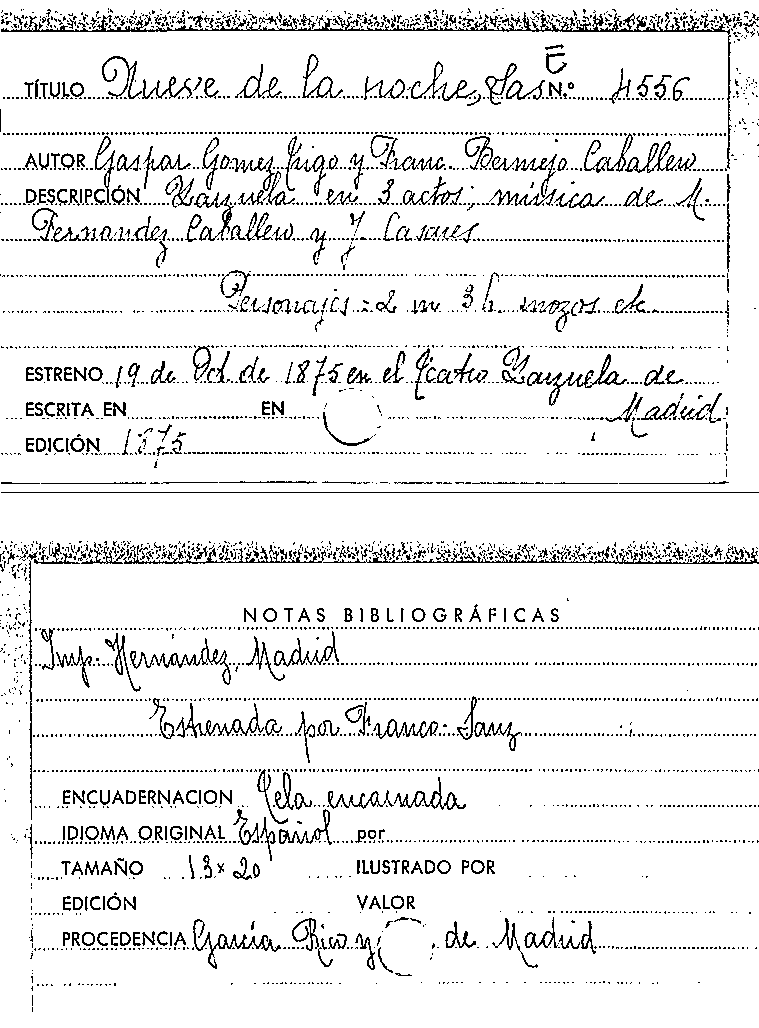 E
TÍTULO Nueve de la noche, Las N.º 4556
AUTOR Gaspar Gomez Trigo y Franc. Bermejo Caballero
DESCRIPCIÓN Zarzuela en 3 actos; música de M.
Fernandez Caballero y J. Casares
Personajes = 2 m 3 h. mozos etc
ESTRENO 19 de Oct. de 1875 en el Teatro Zarzuela de
ESCRITA EN EN Madrid
EDICIÓN 1875
NOTAS BIBLIOGRÁFICAS
Imp. Hernández, Madrid
Estrenada por Franco-Sanz
ENCUADERNACION Tela encarnada
IDIOMA ORIGINAL Español por
TAMAÑO 13 x 20 ILUSTRADO POR
EDICIÓN VALOR
PROCEDENCIA García Rico y de Madrid